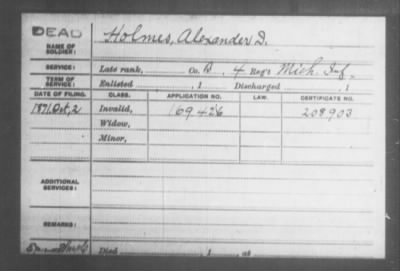 DEAD
NAME OF SOLDIER: Holmes, Alexander D.
SERVICE: Late rank, Co. B, 4 Reg't Mich. Inf.
TERM OF SERVICE: Enlisted , 1 Discharged , 1
DATE OF FILING. CLASS. APPLICATION NO. LAW. CERTIFICATE NO.
1871, Oct, 2 Invalid, 169426 208903
Widow,
Minor,
ADDITIONAL SERVICES:
REMARKS:
Died , 1 , at